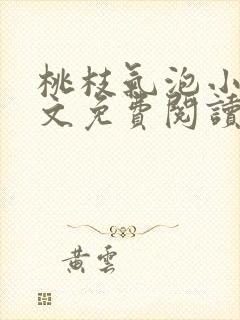 桃枝氣泡小
文免費閱讀
黃雲